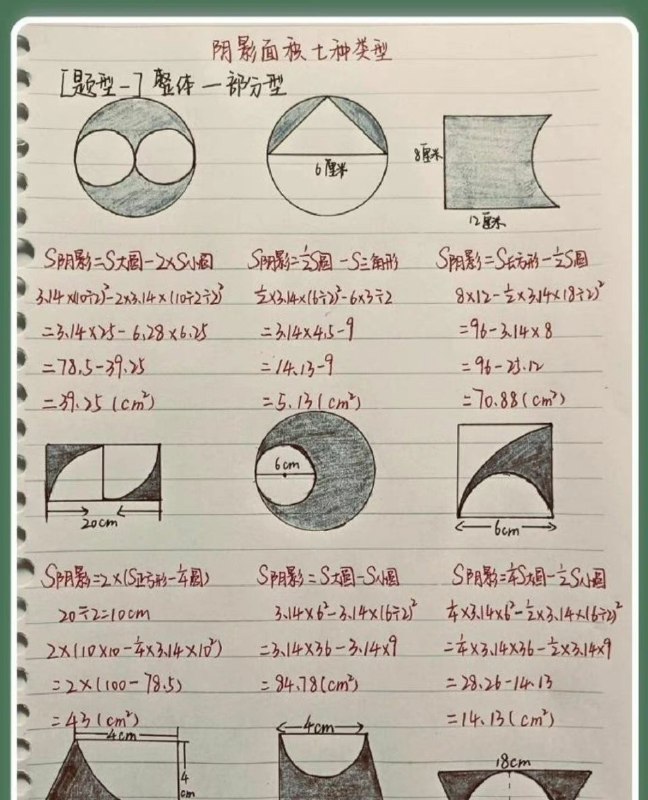 阴影面积七种类型
[题型一] 整体一部分型
6厘米
8厘米
12厘米
S阴影=S大圆-2×S小圆
3.14×(10÷2)²-2×3.14×(10÷2÷2)²
=3.14×25-6.28×6.25
=78.5-39.25
=39.25(cm²)
S阴影=½S圆-S三角形
½×3.14×(6÷2)²-6×3÷2
=3.14×4.5-9
=14.13-9
=5.13(cm²)
S阴影=S长方形-½S圆
8×12-½×3.14×(8÷2)²
=96-3.14×8
=96-25.12
=70.88(cm²)
20cm
6cm
6cm
S阴影=2×(S正方形-¼圆)
20÷2=10cm
2×(10×10-¼×3.14×10²)
=2×(100-78.5)
=43(cm²)
S阴影=S大圆-S小圆
3.14×6²-3.14×(6÷2)²
=3.14×36-3.14×9
=84.78(cm²)
S阴影=¼S大圆-½S小圆
¼×3.14×6²-½×3.14×(6÷2)²
=¼×3.14×36-½×3.14×9
=28.26-14.13
=14.13(cm²)
4cm
4
cm
4cm
18cm